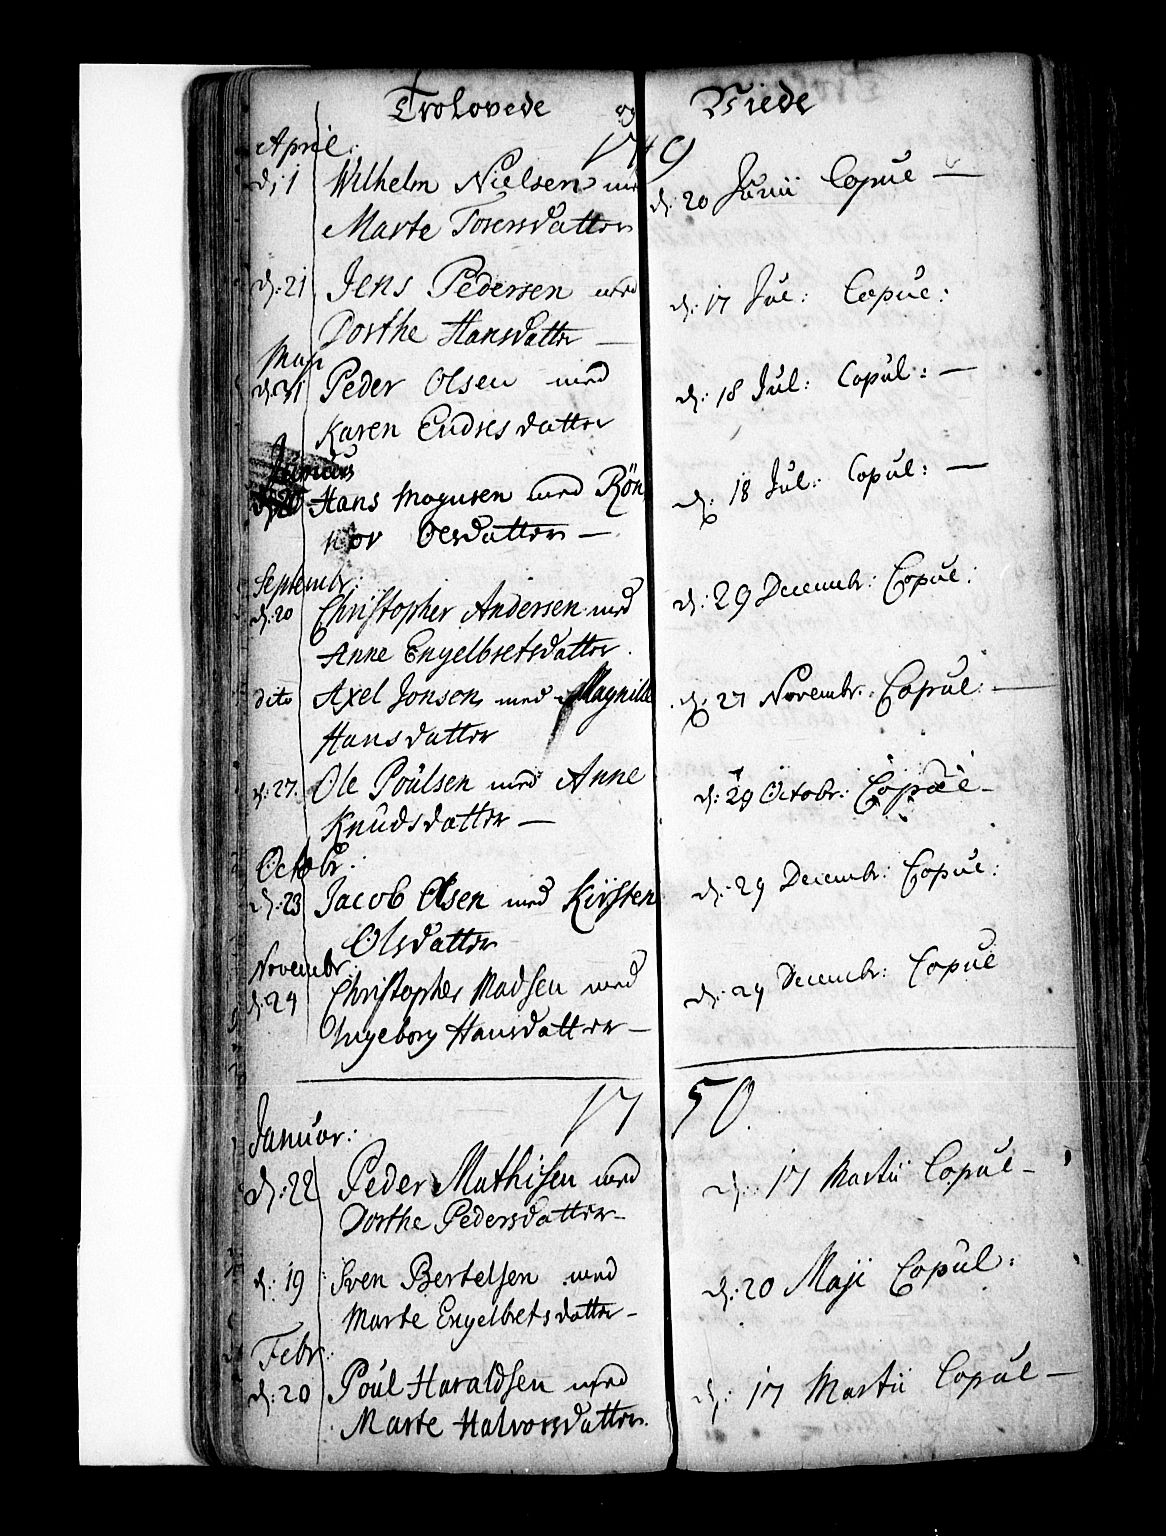 Trolovede og Viede
1749
April:
d: 1 Wilhelm Nielsen med d: 20 Junii Copul —
Marte Torersdatter
d: 21 Jens Pedersen med d: 17 Jul: Copul:
Dorthe Hansdatter —
Maji
d: 31 Peder Olsen med d: 18 Jul: Copul: —
Karen Endresdatter
Junius
Hans Mogensen med Rön d: 18 Jul: Copul: —
nor Olsdatter —
Septembr:
d: 20 Christopher Andersen med d: 29 Decembr: Copul:
Anne Engelbretsdatter.
dito Axel Jonsen med Magnilld d: 27 Novembr: Copul: —
Hansdatter
d: 27. Ole Poulsen med Anne d: 29 Octobr: Copul —
Knudsdatter —
Octobr:
d: 23 Jacob Olsen med Kirsten d: 29 Decembr: Copul:
Olsdatter
Novembr:
d: 24 Christopher Madsen med d: 29 Decembr: Copul
Ingeborg Hansdatter —
1750.
Januar:
d: 22 Peder Mathisen med d: 17 Martii Copul —
Dorthe Pedersdatter —
d: 19 Sven Bertelsen med d: 20 Maji Copul:
Marte Engelbretsdatter —
Febr:
d: 20 Poul Haraldsen med d: 17 Martii Copul —
Marte Halvorsdatter.